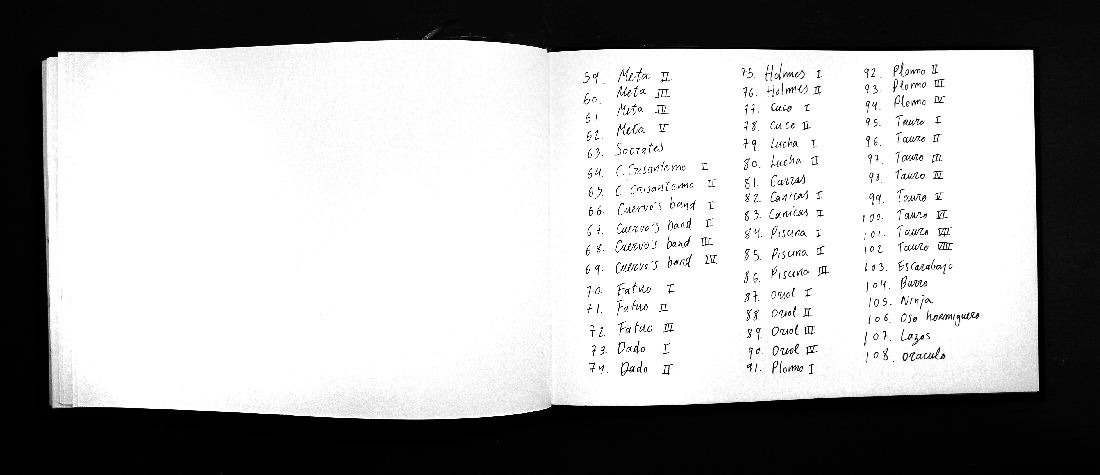 59. Meta II
60. Meta III
61. Meta III
62. Meta V
63. Socrates
64. C. Crisantemo I
65. C. Crisantemo II
66. Cuervo's band I
67. Cuervo's band II
68. Cuervo's band III
69. Cuervo's band IV
70. Fatuo I
71. Fatuo II
72. Fatuo III
73. Dado I
74. Dado II
75. Holmes I
76. Holmes II
77. Cuco I
78. Cuco II
79. Lucha I
80. Lucha II
81. Carras
82. Canicas I
83. Canicas II
84. Piscina I
85. Piscina II
86. Piscina III
87. Oriol I
88 Oriol II
89. Oriol III
90. Oriol IV
91. Plomo I
92. Plomo II
93. Plomo III
94. Plomo IV
95. Tauro I
96. Tauro II
97. Tauro III
98. Tauro IV
99. Tauro V
100. Tauro VI
101. Tauro VII
102. Tauro VIII
103. Escarabajo
104. Barro
105. Ninja
106. Oso hormiguero
107. Lazos
108. Oraculo